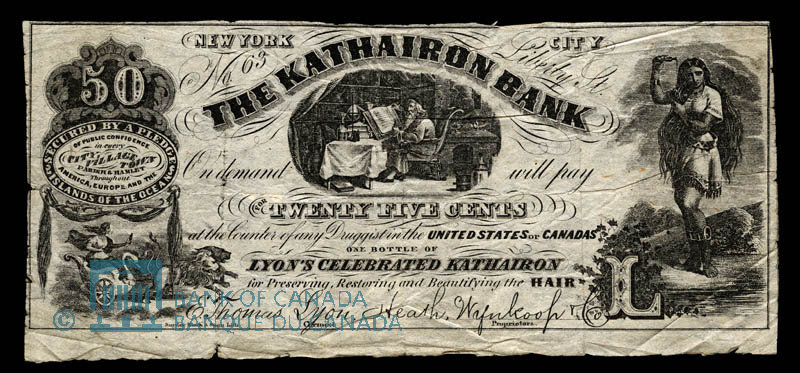 NEW YORK CITY
No 63 Liberty St.
THE KATHAIRON BANK
50
SECURED BY A PLEDGE
OF PUBLIC CONFIDENCE
in every
CITY
VILLAGE
TOWN
PARISH & HAMLET
Throughout
AMERICA, EUROPE AND THE
ISLANDS OF THE OCEAN
On demand will pay
FOR
TWENTY FIVE CENTS
at the Counter of any Druggist in the UNITED STATES or CANADAS
ONE BOTTLE OF
LYON'S CELEBRATED KATHAIRON
for Preserving, Restoring and Beautifying the HAIR
E. Thomas Lyon Heath, Wynkoop & Co
Proprietors.
L
© BANK OF CANADA
BANQUE DU CANADA